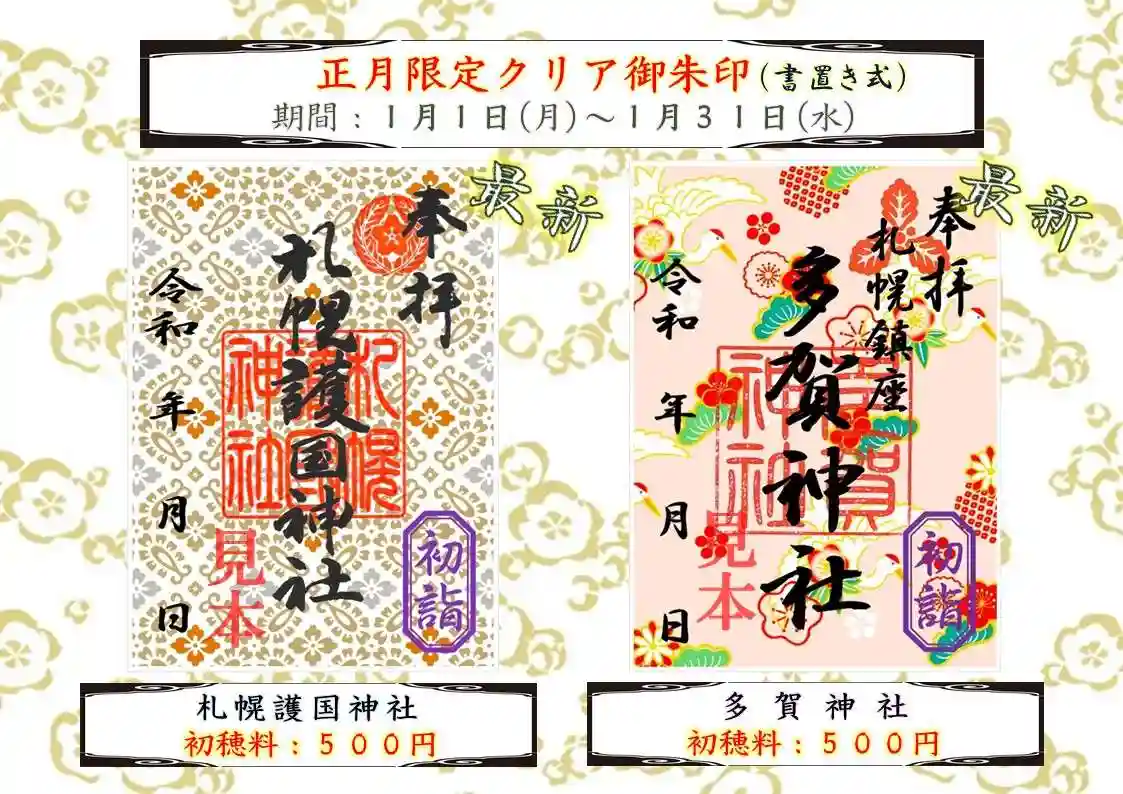 正月限定クリア御朱印(書置き式)
期間：１月１日(月)～１月３１日(水)
最新
奉拝
札幌護国神社
札幌護国神社
令和 年 月 日
見本
初詣
最新
奉拝
札幌鎮座
多賀神社
多賀神社
令和 年 月 日
見本
初詣
札幌護国神社
初穂料：５００円
多賀神社
初穂料：５００円